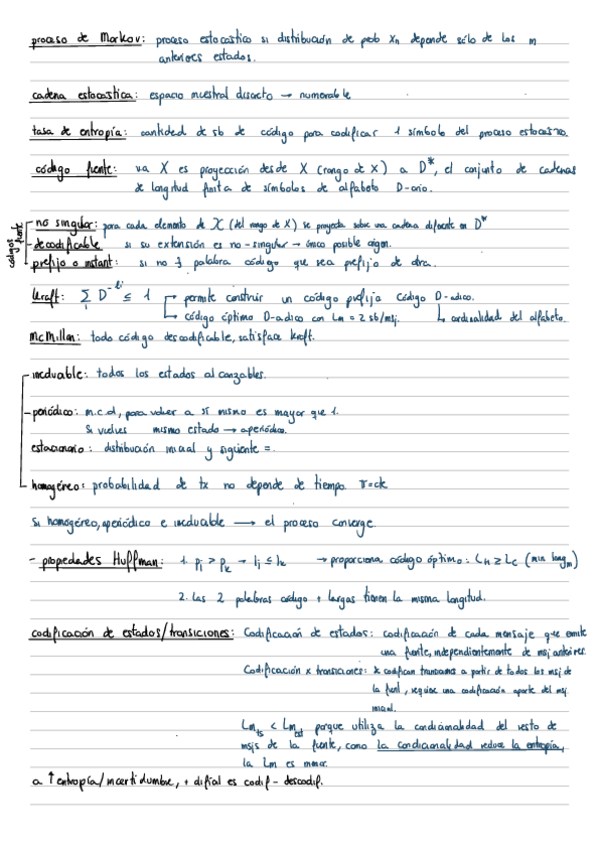 proceso de Markov: proceso estocastico si distribución de prob Xn depende sólo de los m
anteriores estados.
cadena estocastica: espacio muestral discreto → numerable
tasa de entropía: cantidad de sb de código para codificar 1 símbolo del proceso estocástico.
código fuente: va X es proyección desde X (rango de X) a D*, el conjunto de cadenas
de longitud finita de símbolos de alfabeto D-ario.
códigos fuente
no singular: para cada elemento de X (del rango de X) se proyecta sobre una cadena diferente en D*
decodificable si su extensión es no-singular → único posible origen.
prefijo o instant: si no ∃ palabra código que sea prefijo de otra.
Kraft: Σ D^-li ≤ 1 permite construir un código prefijo código D-adico.
código óptimo D-adico con Lm = 2 sb/msj. cardinalidad del alfabeto.
McMillan: todo código descodificable, satisface kraft.
irreduable: todos los estados alcanzables.
periódico: m.c.d, para volver a sí mismo es mayor que 1.
Si vuelves mismo estado → aperiódico.
estacionario: distribución inicial y siguiente =.
homogéneo: probabilidad de tx no depende de tiempo
Si homogéneo, aperiódico e irreduable → el proceso converge.
- propiedades Huffman: 1. Pj > Pk → lj ≤ lk → proporciona código óptimo: Ln ≥ Lc (min long m)
2. las 2 palabras código + largas tienen la misma longitud.
codificación de estados/transiciones: Codificación de estados: codificación de cada mensaje que emite
una fuente, independientemente de msj anteriores.
Codificación x transiciones: se codifican transiciones a partir de todos los msj de
la fuente, requiere una codificación aparte del msj
inicial.
Lm ts < Lm est porque utiliza la condicionalidad del resto de
msjs de la fuente, como la condicionalidad reduce la entropía,
la Lm es menor.
a ↑ entropía/incertidumbre, + difícil es codif - descodif.